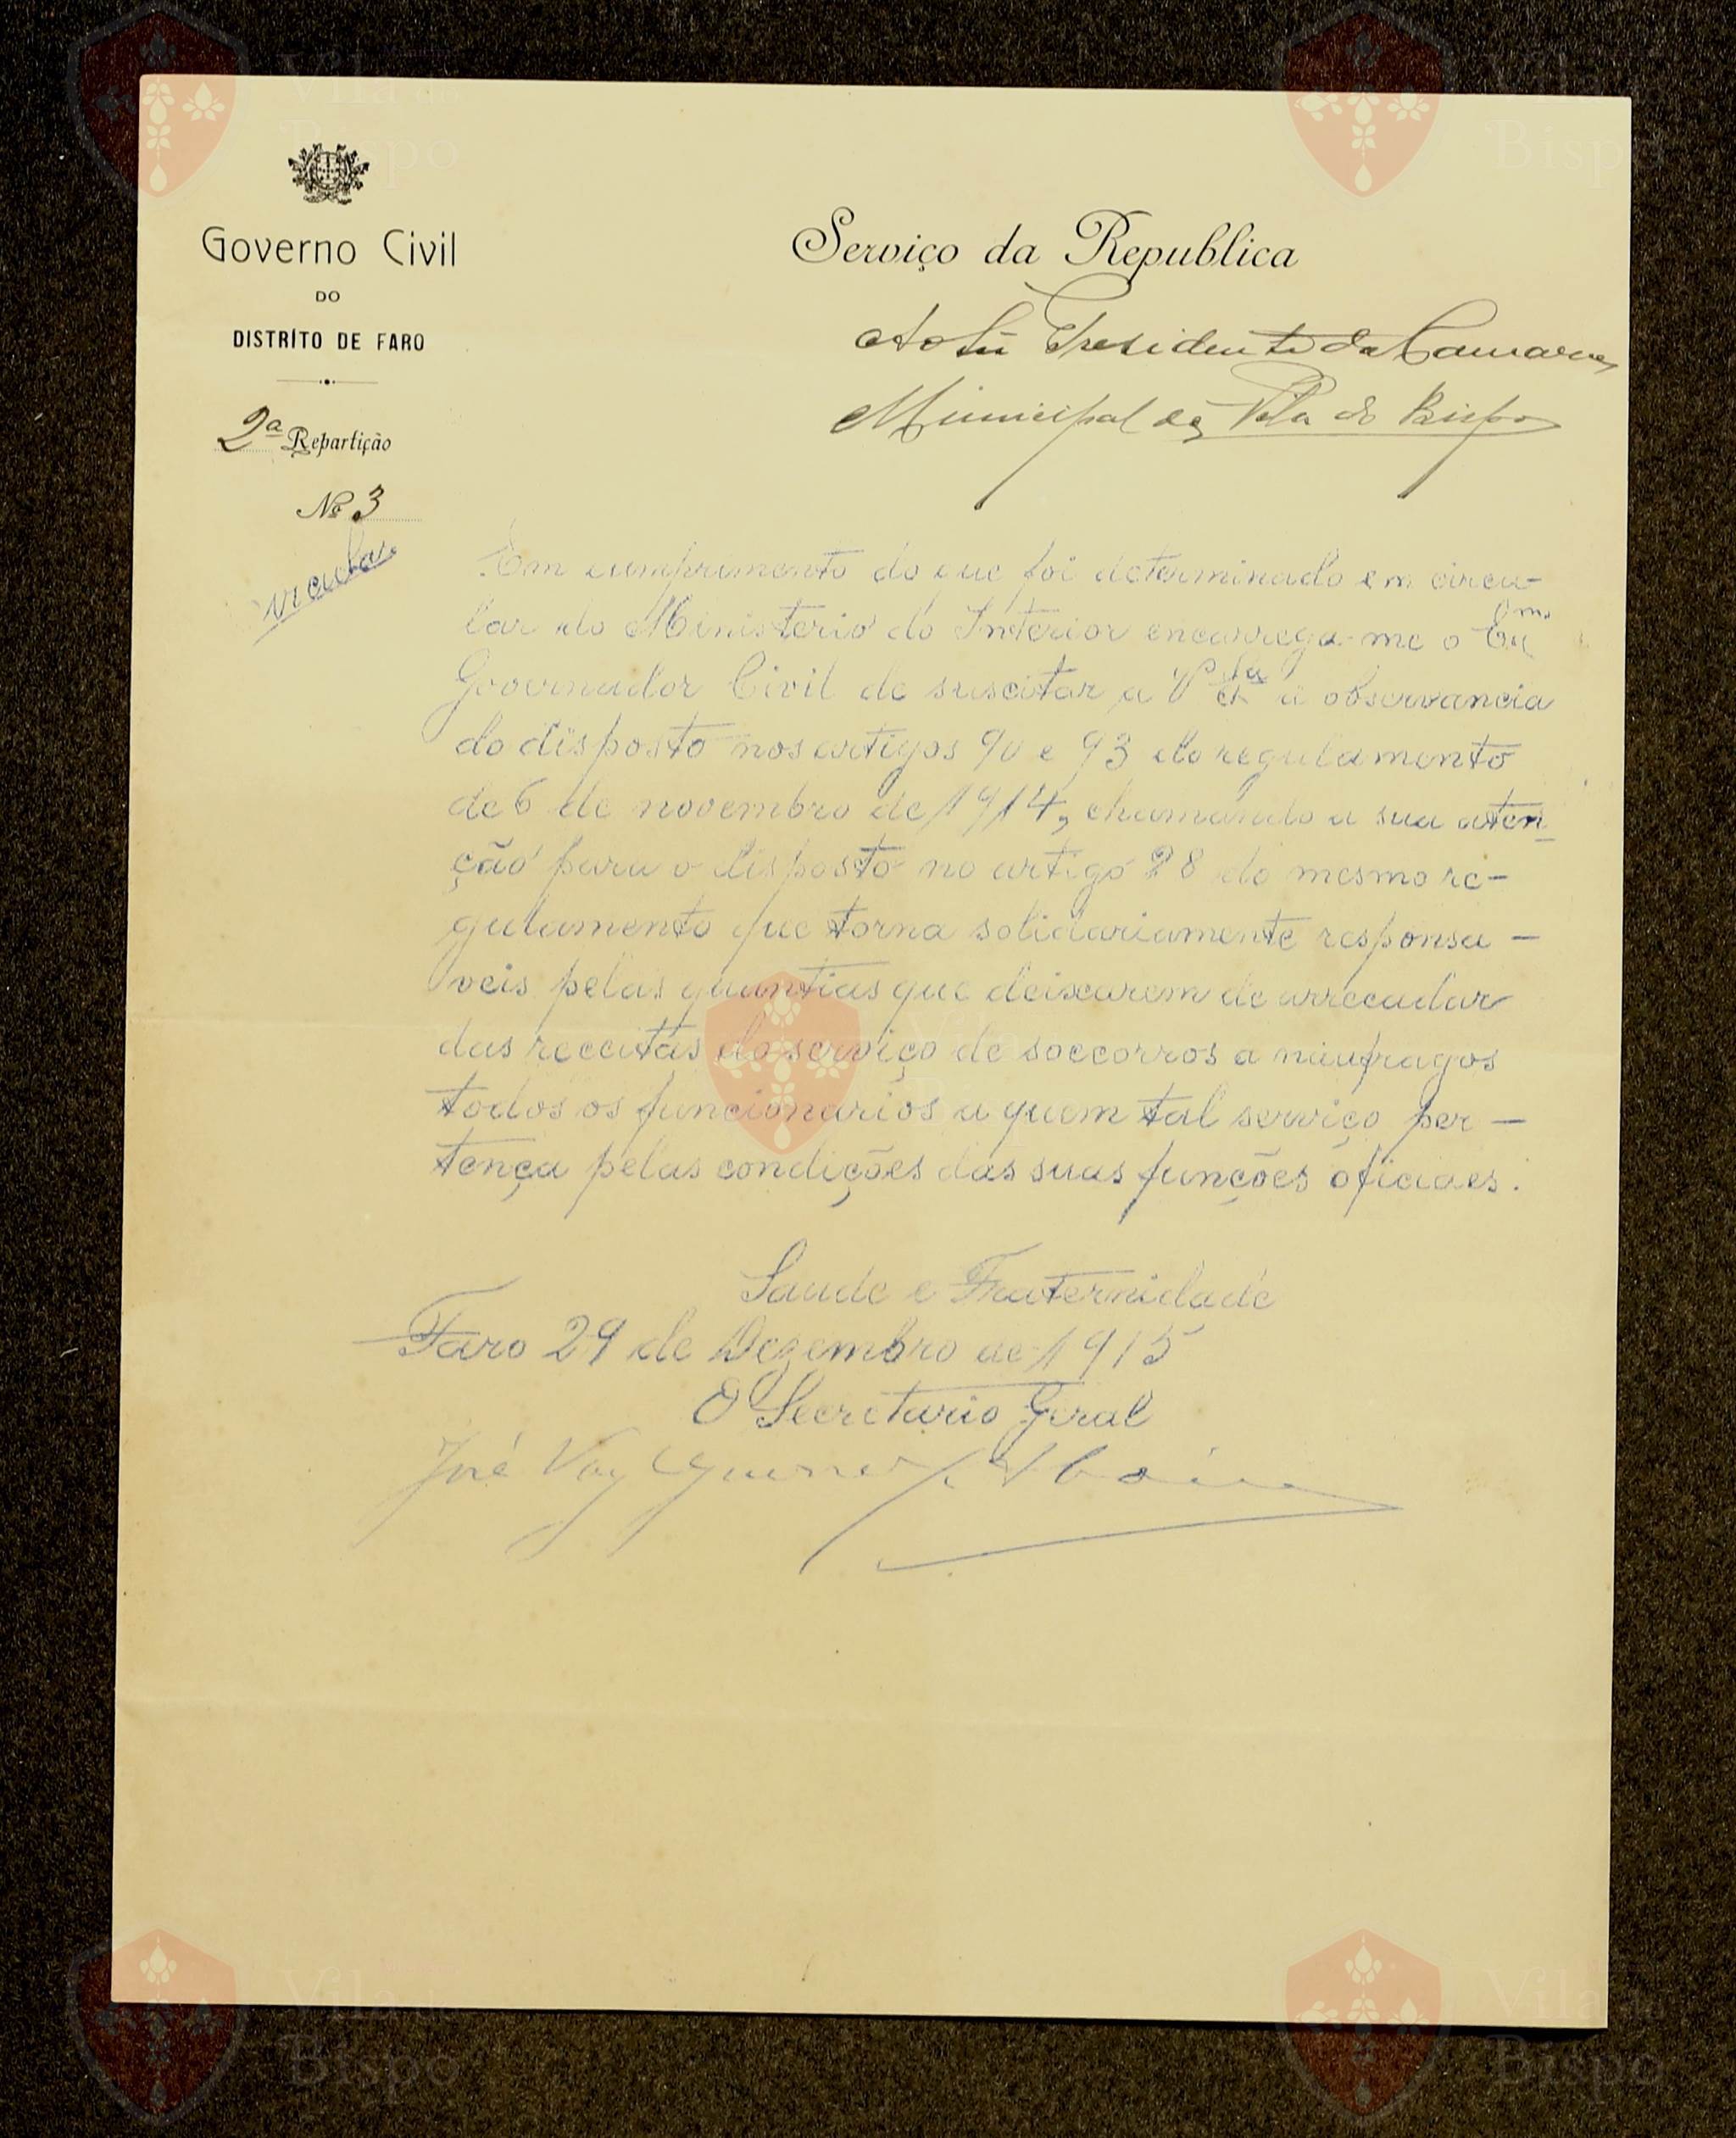 Governo Civil
DO
DISTRITO DE FARO
2ª Repartição
Nº 3
Serviço da Republica
Ao Snr Presidente da Camara
Municipal de Vila do Bispo
Em cumprimento do que foi determinado em circu-
lar do Ministerio do Interior encarrega-me o Exmo
Governador Civil de suscitar a V. Exa a observancia
do disposto nos artigos 90 e 93 do regulamento
de 6 de novembro de 1914, chamando a sua aten-
ção para o disposto no artigo 28 do mesmo re-
gulamento que torna solidariamente responsa-
veis pelas quantias que deixarem de arrecadar
das receitas do serviço de soccorros a naufragos
todos os funcionarios a quem tal serviço per-
tença pelas condições das suas funções oficiaes.
Saude e Fraternidade
Faro 29 de Dezembro de 1915
O Secretario Geral
José Vaz
Vila do
Bispo
Vila do
Bispo
Vila do
Bispo
Vila do
Bispo